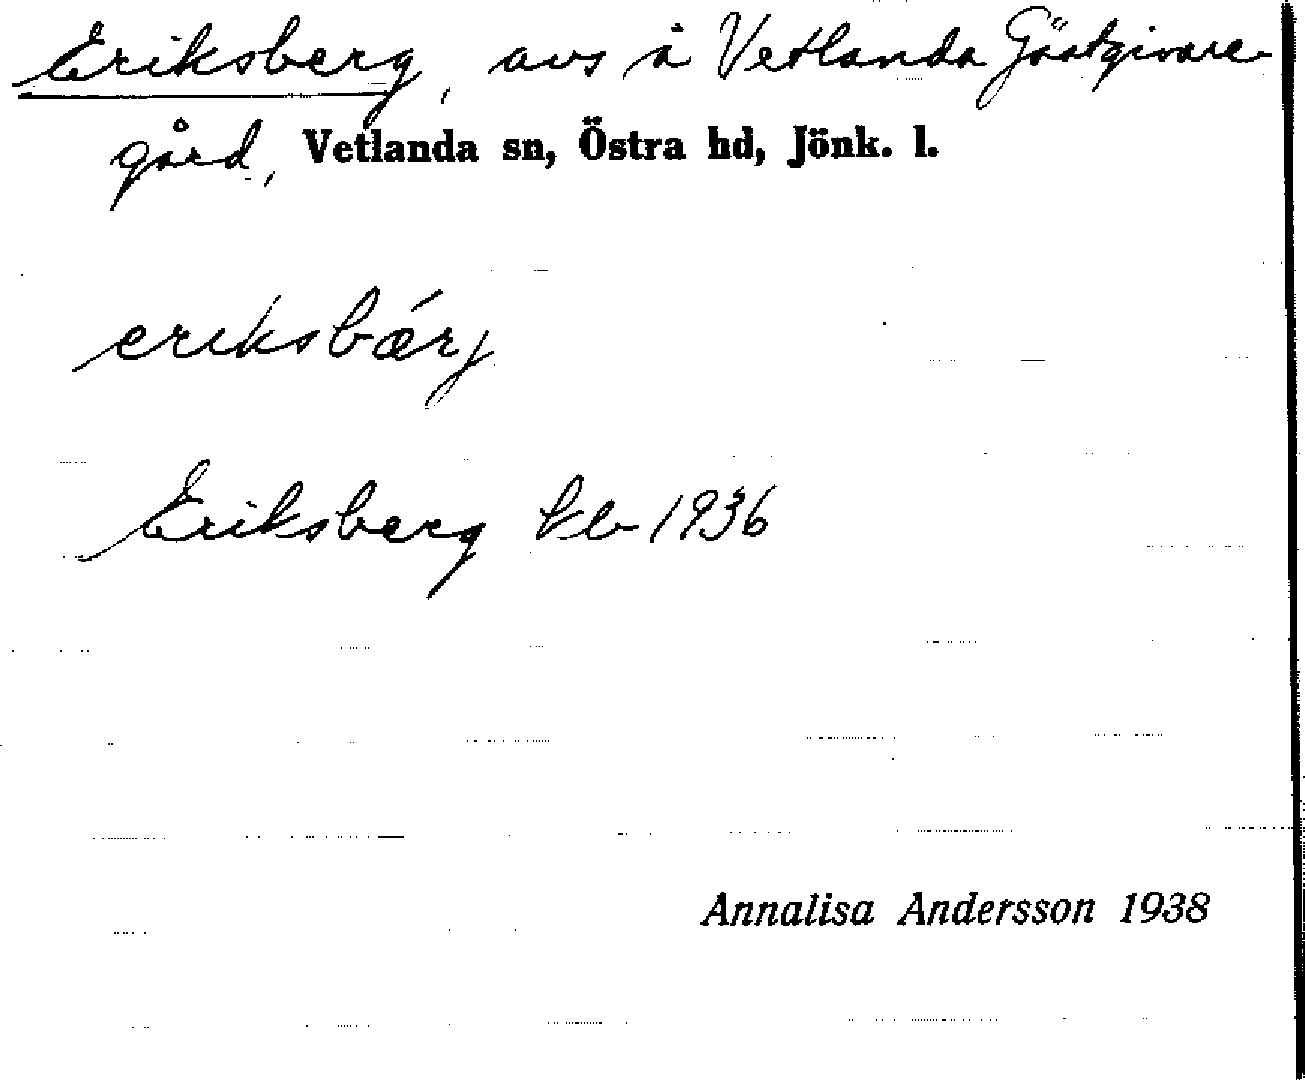 Eriksberg, avs å Vetlanda Gästgivare-
gård, Vetlanda sn, Östra hd, Jönk. l.
eriksbǽrj
Eriksberg kb 1936
Annalisa Andersson 1938